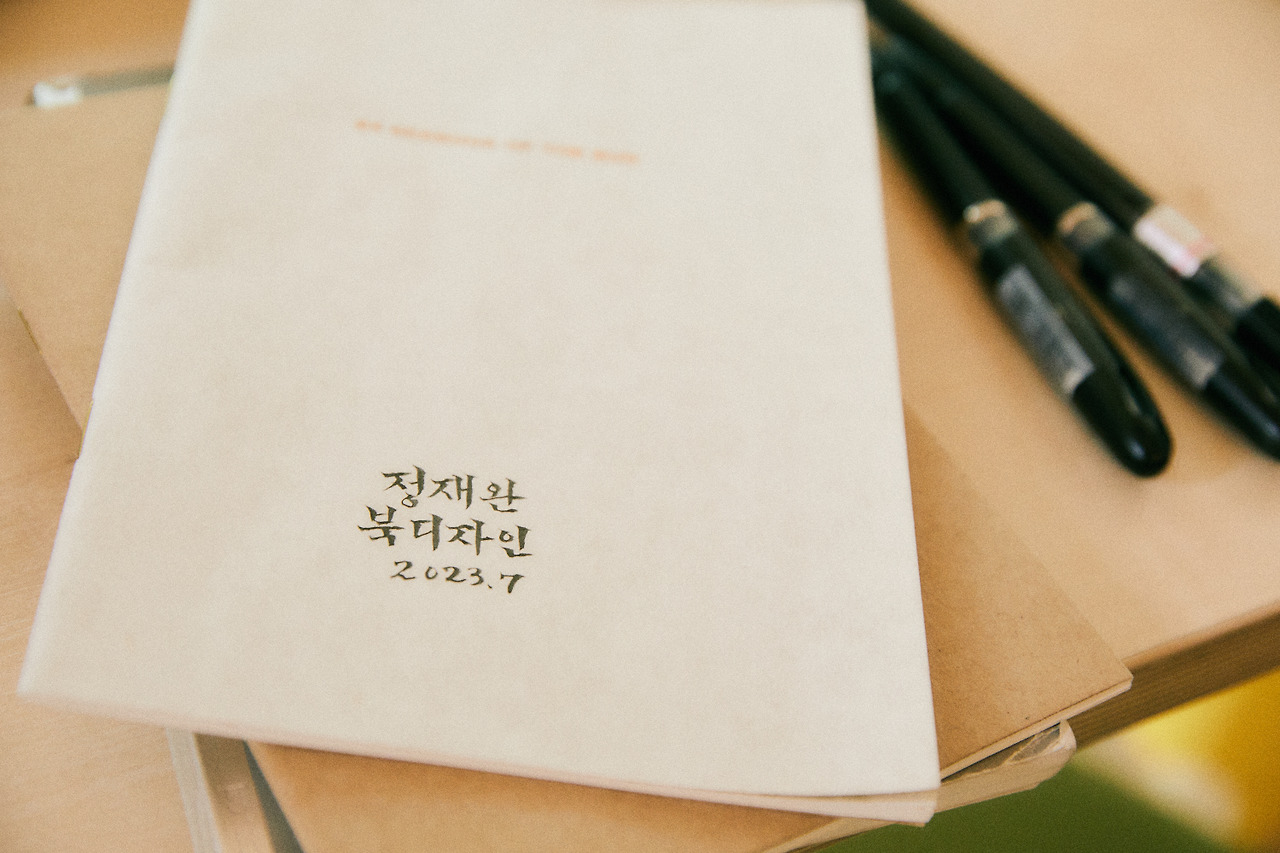 정재완
북디자인
2023.7